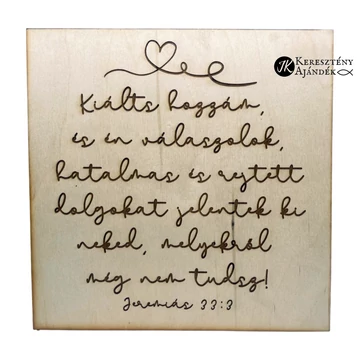 JK Keresztény
Ajándék
Kiálts hozzám,
és én válaszolok,
hatalmas és rejtett
dolgokat jelentek ki
neked, melyekről
még nem tudsz!
Jeremiás 33:3